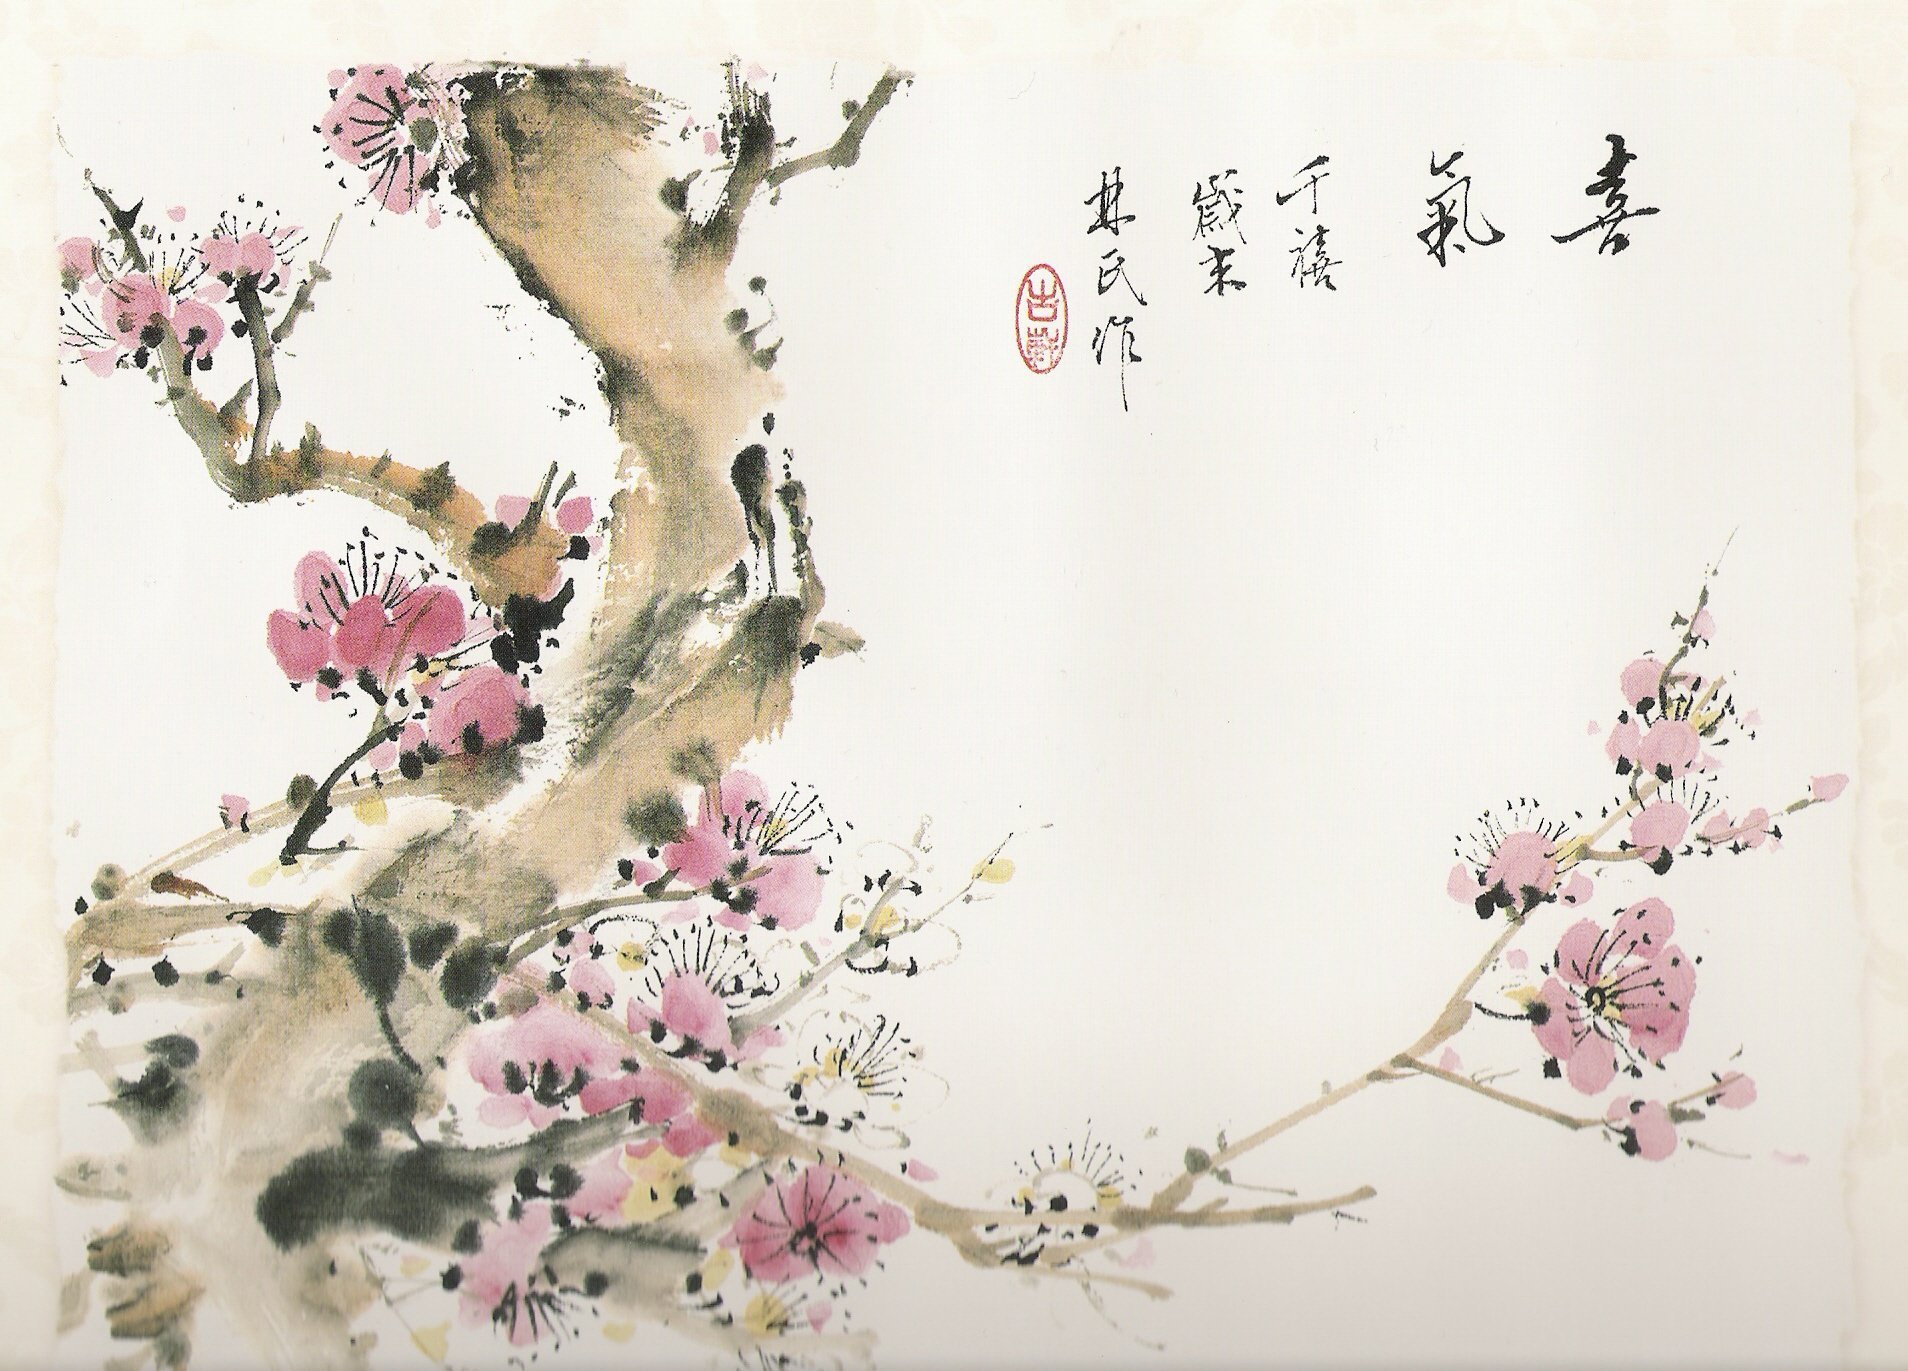 喜
氣
千禧
歲末
林氏作
吉祥